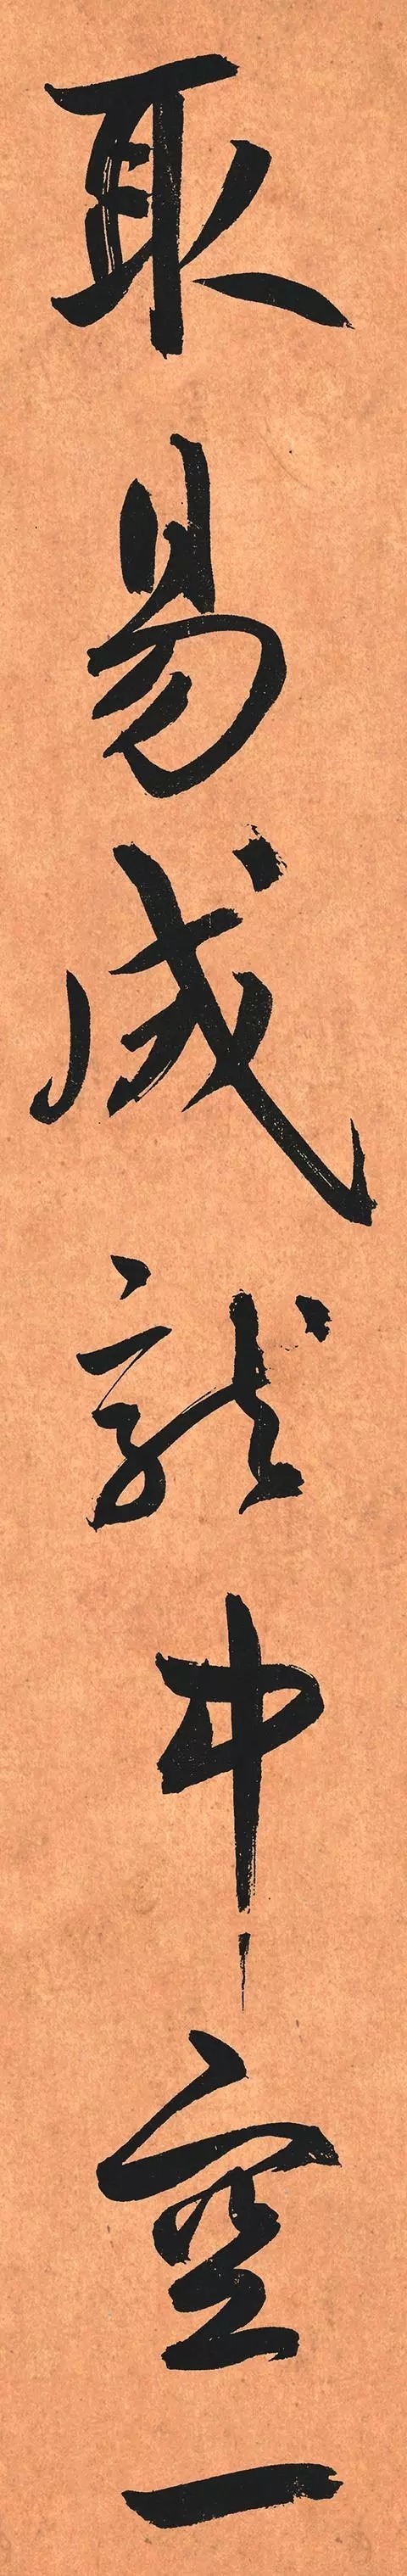 取易成就中空一